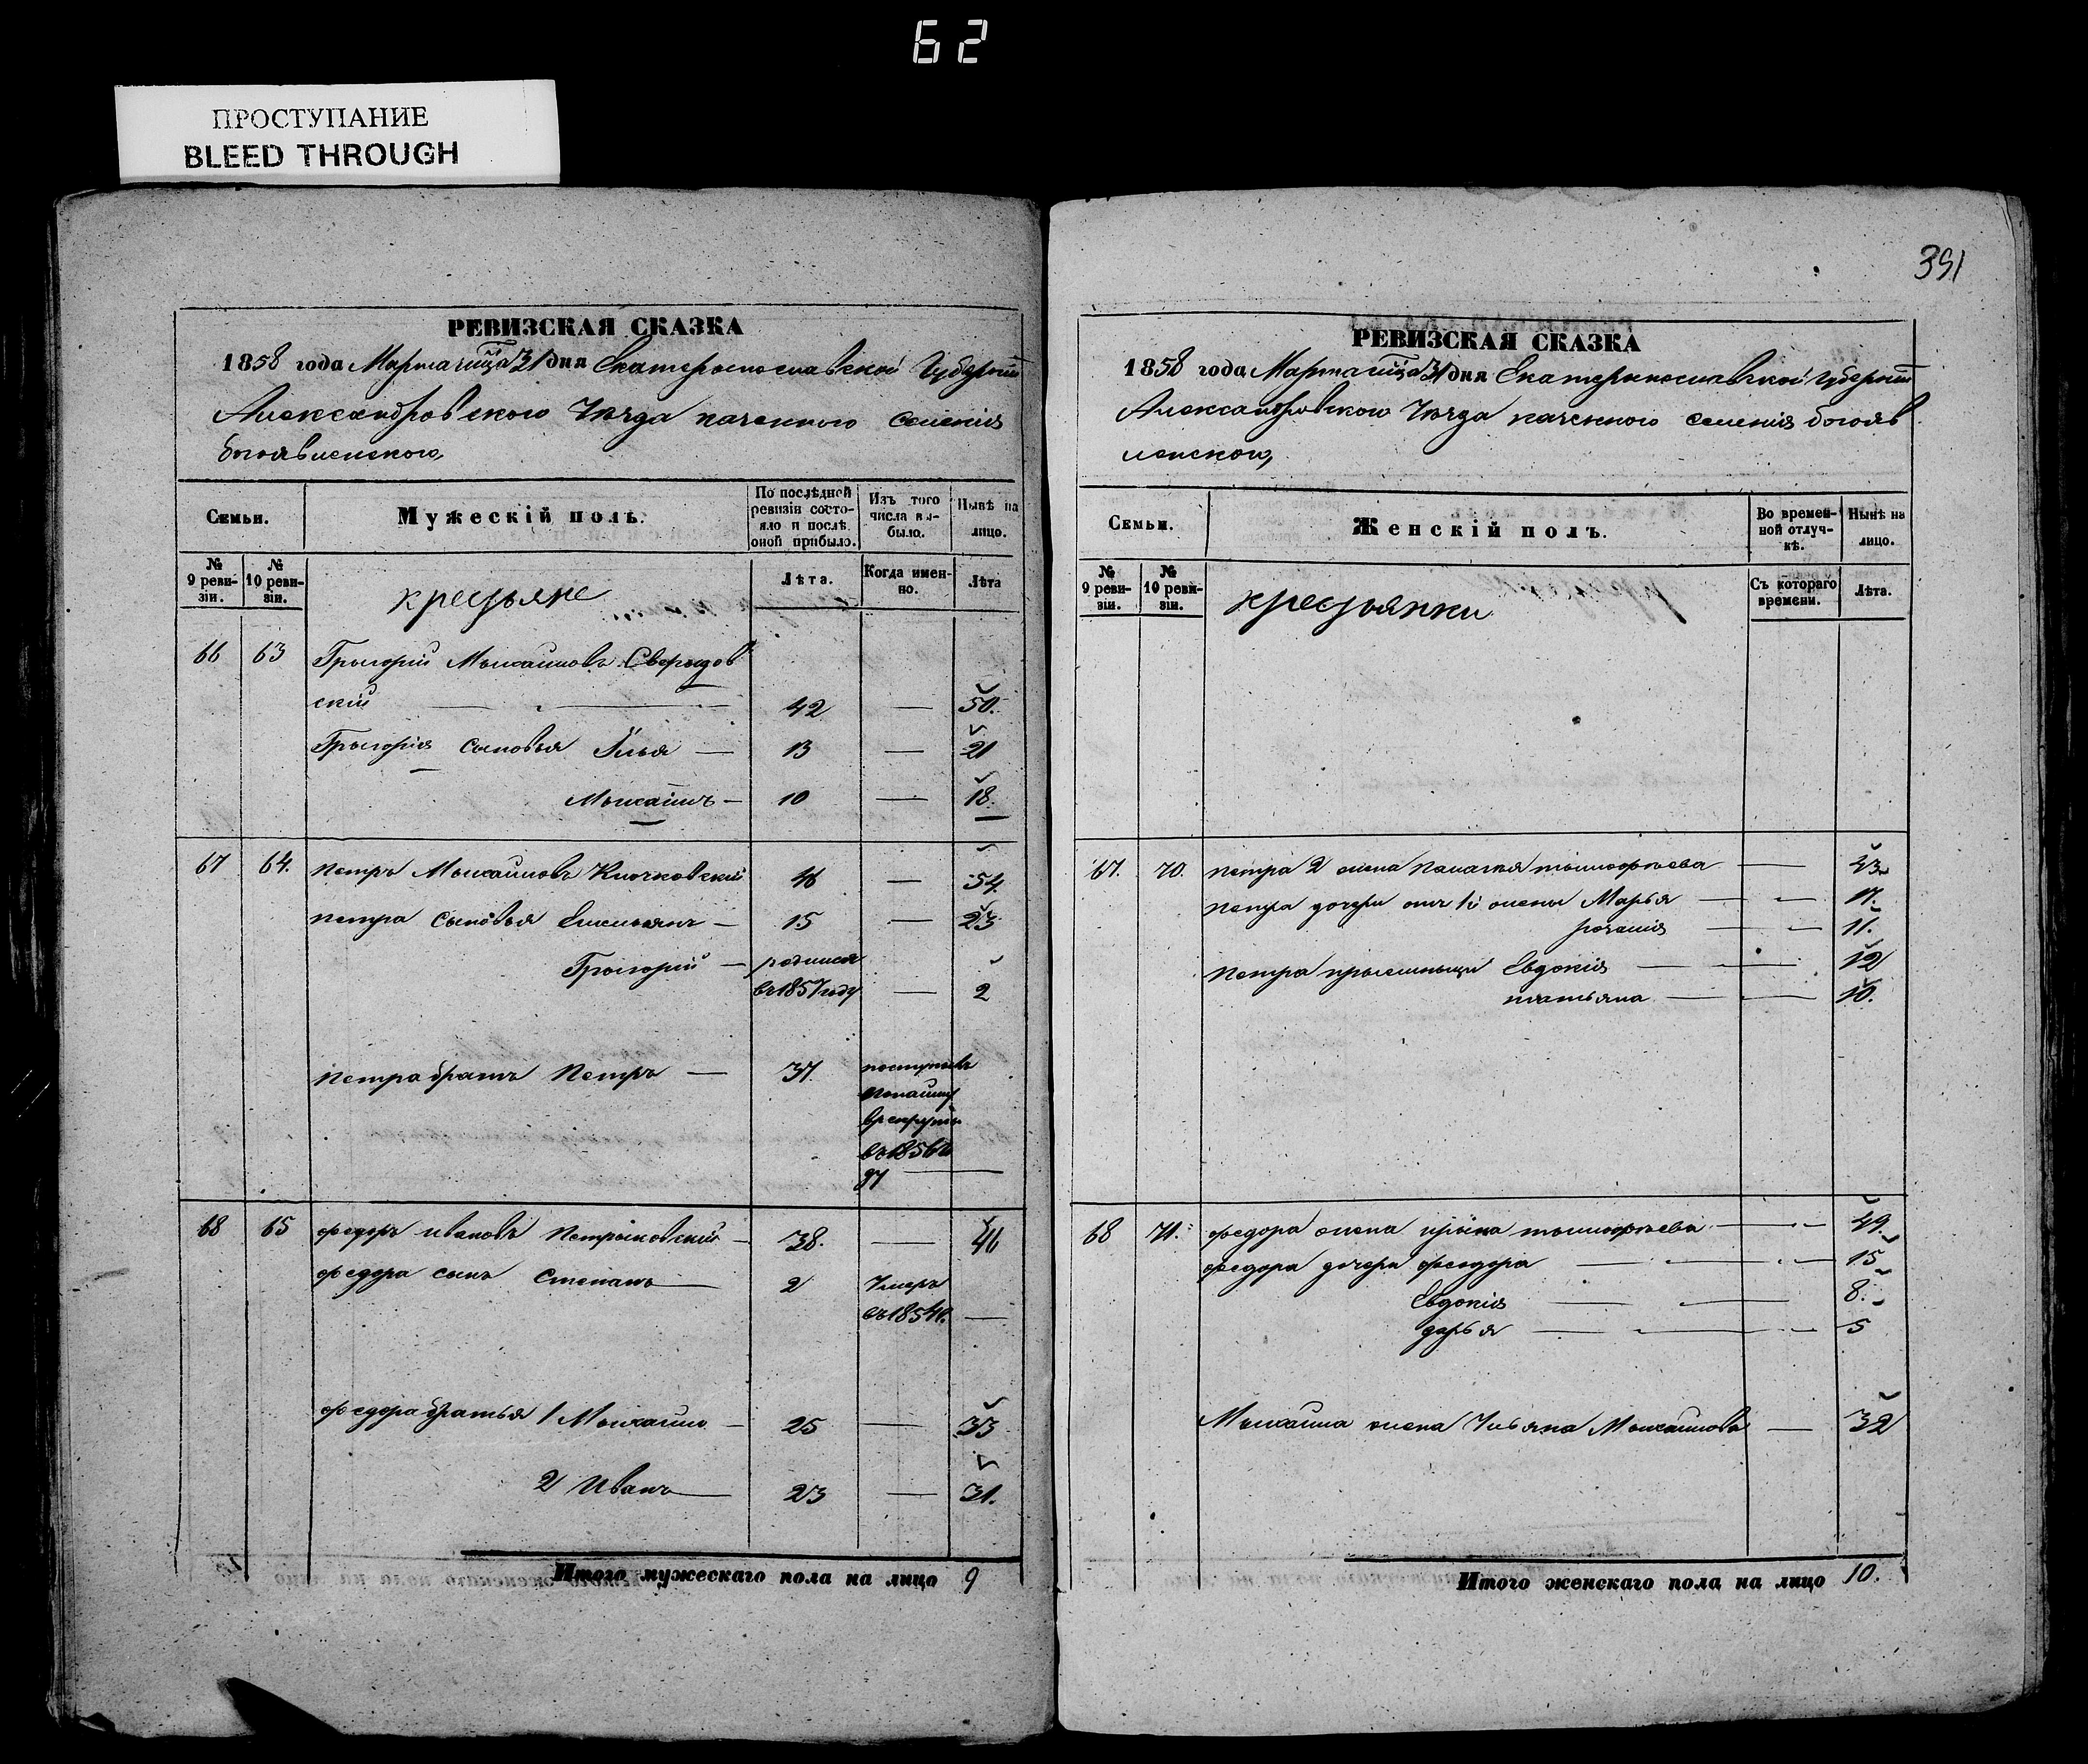 62
ПРОСТУПАНИЕ
BLEED THROUGH
РЕВИЗСКАЯ СКАЗКА
1858 года Марта мца 31 дня Екатеринославской Губерніи
Александровского Уѣзда казенного селенія
богоявленского,
Семьи.
Мужескій полъ.
По послѣдней ревизіи состояло и послѣ оной прибыло.
Изъ того числа выбыло.
Нынѣ на лицо.
№ 9 ревизіи.
№ 10 ревизіи.
крестьяне
Лѣта.
Когда именно.
Лѣта
66 63 Григорий Михаиловъ Свердов
ский 42 — 50.
Григория сыновья Илья — 13 — 21
Михаилъ — 10 — 18.
67 64. петръ Михаиловъ Клочковский 46 — 54.
петра сыновья Емельянъ — 15 — 23.
Григорий — родился
въ 1857 году — 2
петра братъ Петръ — 37.
поступилъ
въ рекруты
въ 1856 го
ду —
68 65 федоръ ивановъ Петриковский — 38. — 46
федора сынъ Степанъ — 2 Умеръ
въ 1854 г. —
федора братья 1 Михаило — 25 — 33
2 Иванъ — 23 — 31.
Итого мужескаго пола на лицо 9
391
РЕВИЗСКАЯ СКАЗКА
1858 года Марта мца 31 дня Екатеринославской Губерніи
Александровского Уѣзда казенного селенія богояв
ленского,
Семьи.
Женскій полъ.
Во временной отлучкѣ.
Нынѣ на лицо.
№ 9 ревизіи.
№ 10 ревизіи.
крестьянки
Съ котораго времени.
Лѣта.
67. 70. петра 2 жена Палагия тимофѣева — 43
петра дочери отъ 1й жены Марья — 17.
11.
петра Евдокия — 12
татьяна — 10.
68 71. федора жена ирина тимофѣева — 49.
федора дочери феодора — 15
Евдокия — 8.
дарья — 5
Михаила жена Ульяна Михаилова — 32
Итого женскаго пола на лицо 10.